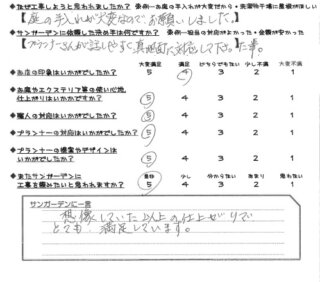 ◆なぜ工事しようと思われましたか？ 条例…お庭の手入れが大変だから・洗濯物干場に屋根がほしい
【庭の手入れが大変なので、お願いしました。】
◆サンガーデンに依頼した決め手は何ですか？ 条例…担当の対応がよかった・金額が安かった
【プランナーさんが話しやすく、真面目に対応して下さった事。】
大変満足 満足 どちらでもない 少し不満 大変不満
◆お店の印象はいかがでしたか？ 5 4 3 2 1
◆お庭やエクステリア等の使い心地、
仕上がりはいかがですか？ 5 4 3 2 1
◆職人の対応はいかがでしたか？ 5 4 3 2 1
◆プランナーの対応はいかがでしたか？ 5 4 3 2 1
◆プランナーの提案やデザインは
いかがでしたか？ 5 4 3 2 1
是非 少し 分からない あまり 思わない
◆またサンガーデンに
工事を頼みたいと思われますか？ 5 4 3 2 1
サンガーデンに一言
想像していた以上の仕上がりで
とても満足しています。